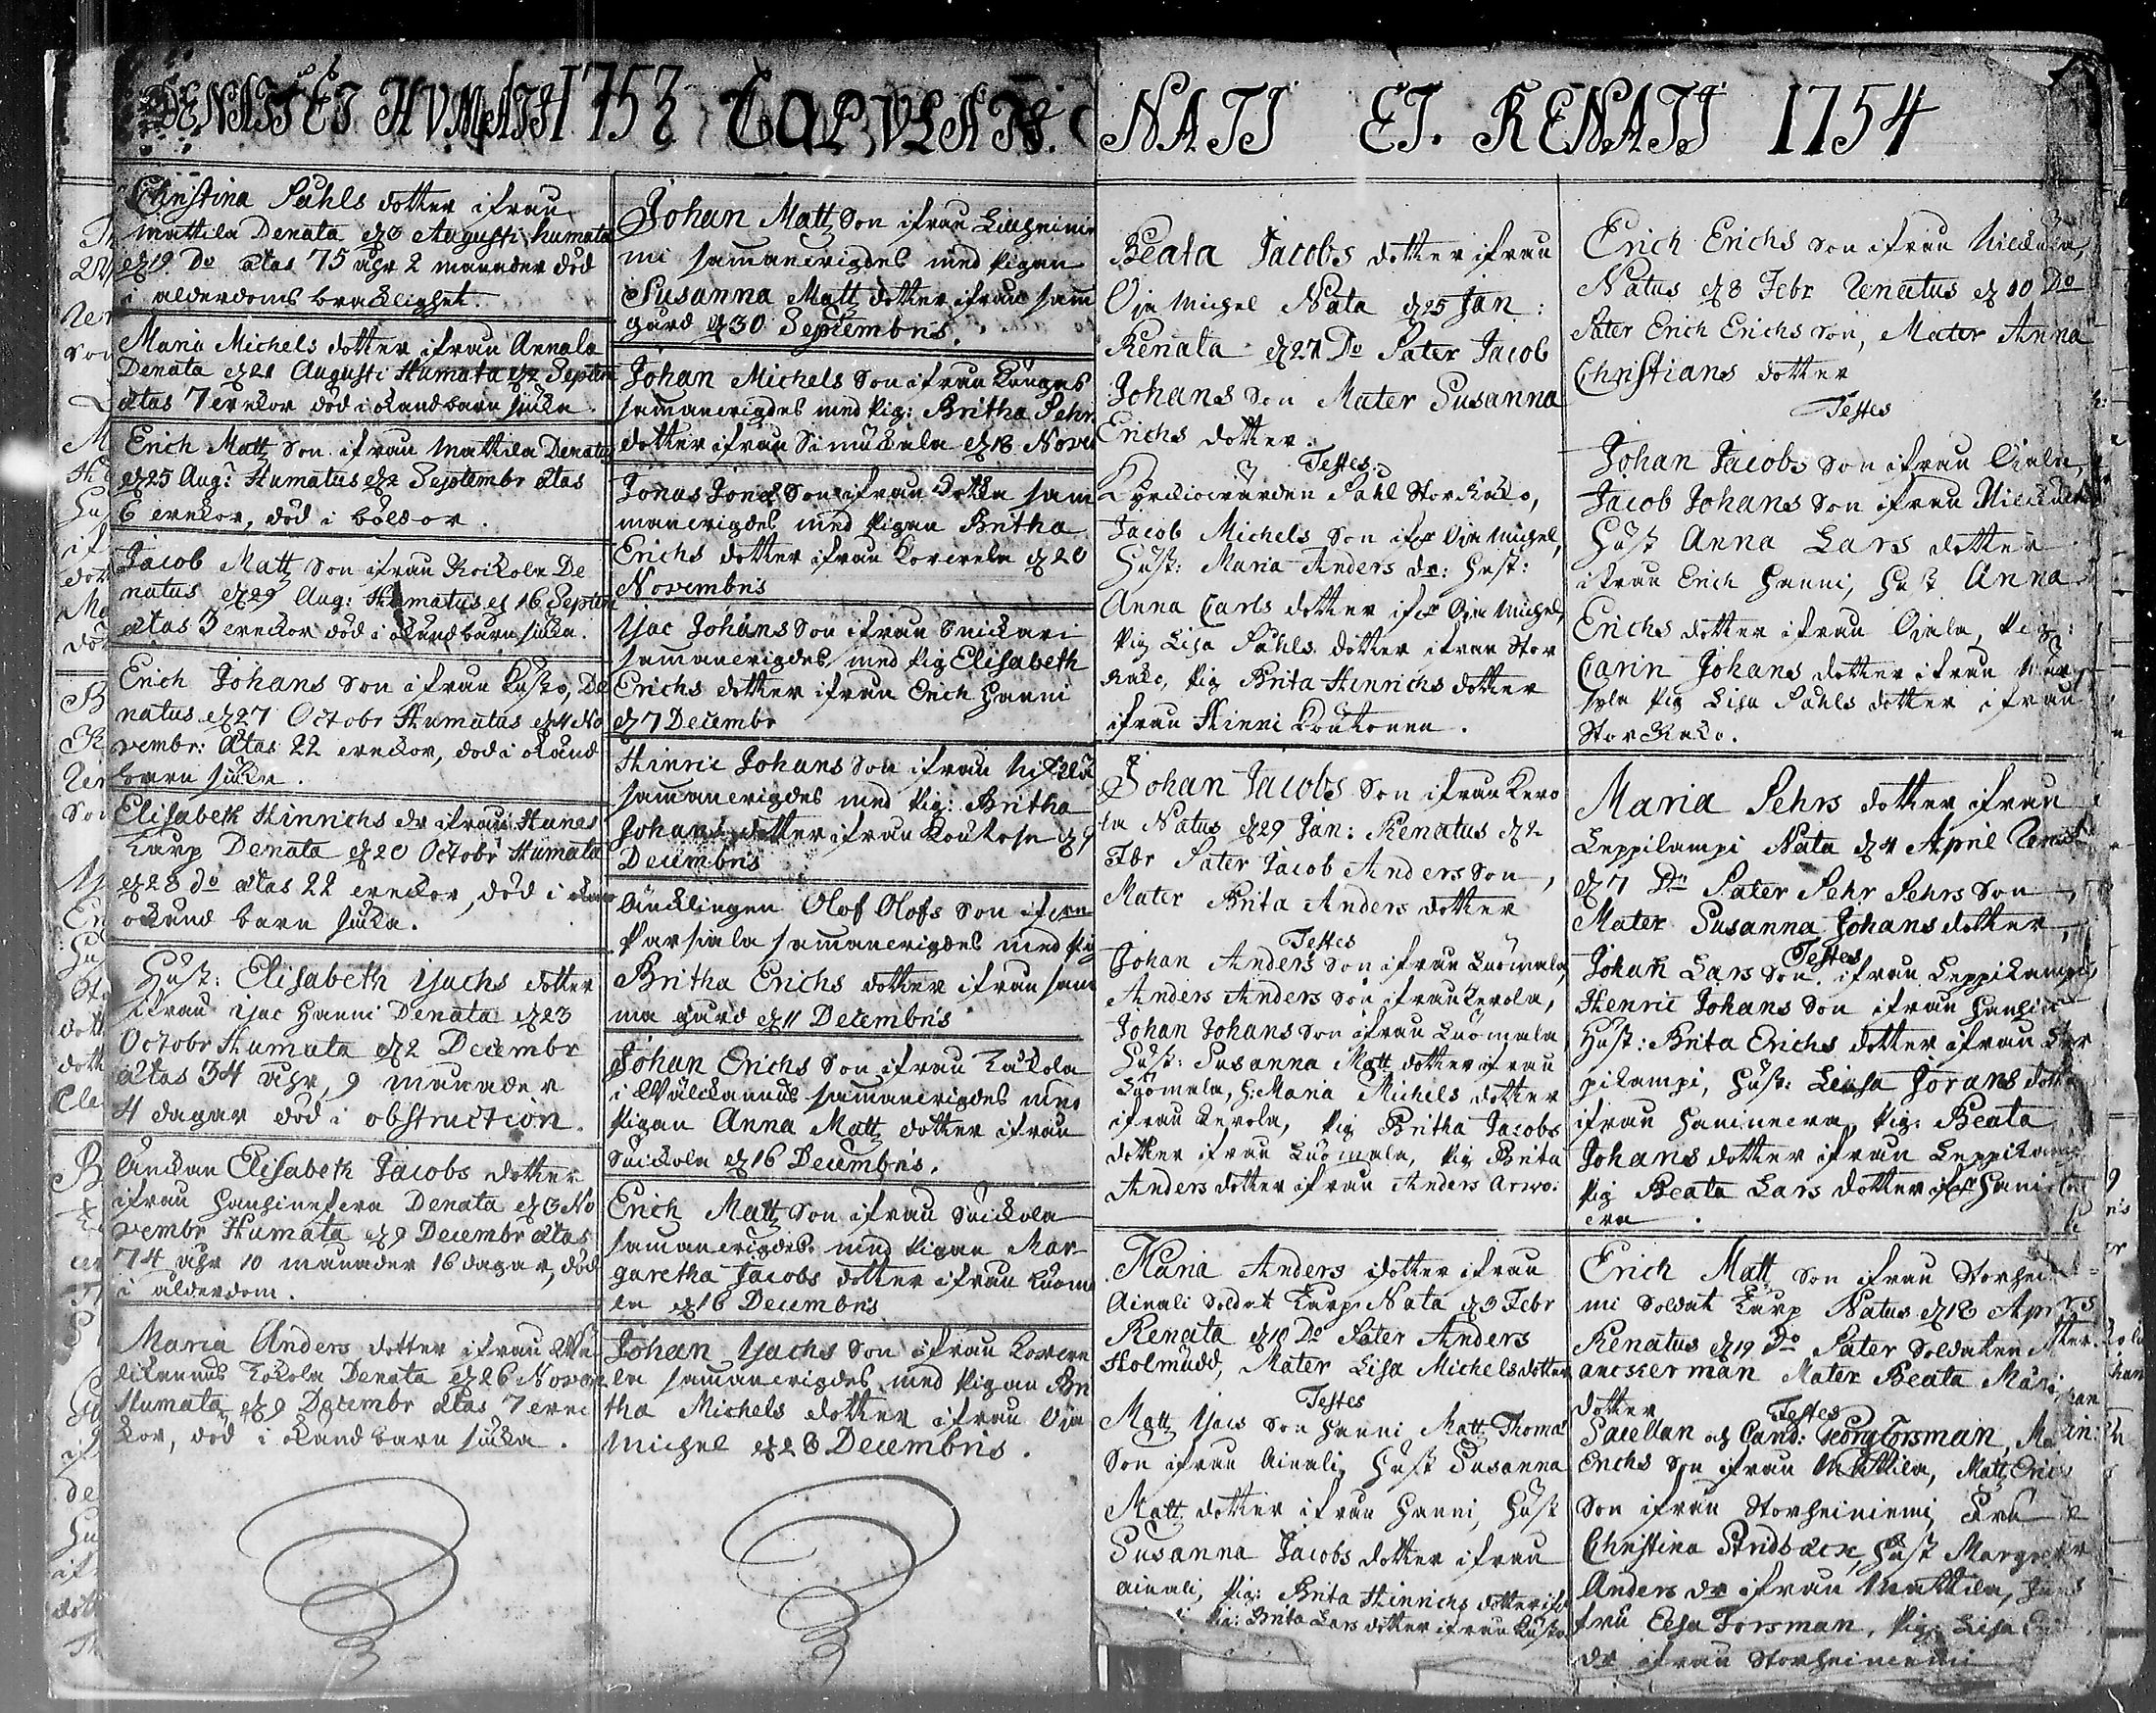 DENATI ET HUMATI 1753
Christina Påhls dotter ifrån
Mattila Denata d 8 Augusti humata
d 19 Do ætas 75 åhr 2 månader död
i ålderdoms bräcklighet.
Maria Michels dotter ifrån Annala
Denata d 21 Augusti Humata d 2 Septem
ætas 7 veckor död i okänd barn siuka.
Erich Matts Son ifrån Mattila Denatus
d 25 Aug: Humatus d 2 Septembr ætas
6 veckor, död i bölder.
Jacob Matts Son ifrån De
natus d 29 Aug: Humatus d 16 Septem
ætas 3 veckor död i okänd barn siuka.
Erich Johans Son ifrån De
natus d 27 Octobr Humatus d 4 No
vembr: ætas 22 veckor, död i okänd
barn siuka.
Elisabeth Hinrichs dr ifrån
Karp Denata d 20 Octobr Humata
d 28 do ætas 22 veckor, död i
okänd barn siuka.
Hust: Elisabeth Isachs dotter
ifrån Isac Hanni Denata d 23
Octobr Humata d 2 Decembr
ætas 34 åhr, 9 månader
4 dagar död i obstruction.
Änckan Elisabeth Jacobs dotter
ifrån Denata d 3 No
vembr Humata d 9 Decembr ætas
74 åhr 10 månader 16 dagar, död
i ålderdom.
Maria Anders dotter ifrån Wä
likannus Kokola Denata d 26 Novem
Humata d 9 Decembr ætas 7 vec
kor, död i okänd barn siuka.
COPULATI
Johan Matts Son ifrån
mi sammanvigdes med Pigan
Susanna Matts dotter ifrån sam
gård d 30 Septembris.
Johan Michels Son ifrån Kangas
sammanvigdes med Pig: Britha Pehrs
dotter ifrån Simuckala d 18 Nove
Jonas Jonæ Son ifrån sam
manvigdes med Pigan Britha
Erichs dotter ifrån Korvela d 20
Novembris
Isac Johans Son ifrån Snickari
sammanvigdes med Pig Elisabeth
Erichs dotter ifrån Erich Hanni
d 7 Decembr
Hinric Johans Son ifrån
sammanvigdes med Pig: Britha
Johans dotter ifrån d 9
Decembris
Äncklingen Olof Olofs Son ifrån
Parsiala sammanvigdes med Pig
Britha Erichs dotter ifrån sam
ma gård d 11 Decembris
Johan Erichs Son ifrån Kåkola
i Wälikannus sammanvigdes med
Pigan Anna Matts dotter ifrån
Snickola d 16 Decembris.
Erich Matts Son ifrån Snickola
sammanvigdes med Pigan Mar-
garetha Jacobs dotter ifrån Luoma
la d 16 Decembris
Johan Isachs Son ifrån Korve
la sammanvigdes med Pigan Bri
tha Michels dotter ifrån Oja
Michel d 28 Decembris.
NATI ET. RENATI 1754
Beata Jacobs dotter ifrån
Oja Michel Nata d 25 Jan:
Renata d 27 Do Pater Jacob
Johans Son Mater Susanna
Erichs dotter.
Testes.
Kyrckiowärden Påhl Stor Kako,
Jacob Michels Son ifr Oja Michel,
Hust: Maria Anders dr: Hust:
Anna Carls dotter ifr Oja Michel,
Pig Lisa Påhls dotter ifrån Stor
Kako, Pig Brita Hinrichs dotter
ifrån Hinric Koukonen.
Johan Jacobs Son ifrån Kero
la Natus d 29 Jan: Renatus d 2
Febr Pater Jacob Anders Son,
Mater Brita Anders dotter
Testes
Johan Anders Son ifrån Luomala,
Anders Anders Son ifrån Kerola,
Johan Johans Son ifrån Luomala
Hust: Susanna Matts dotter ifrån
Luomala, H: Maria Michels dotter
ifrån Kerola, Pig Britha Jacobs
dotter ifrån Luomala, Pig Brita
Anders dotter ifrån Anders Arwo.
Maria Anders dotter ifrån
Ainali Soldat Karp Nata d 9 Febr
Renata d 10 Do Pater Anders
Holmudd, Mater Lisa Michels dotter
Testes
Matts Isacs Son Hanni Matts Thomas
Son ifrån Ainali, Hust Susanna
Matts dotter ifrån Hanni, Hust
Susanna Jacobs dotter ifrån
Ainali, Pig: Brita Hinrichs dotter ifr
Pig: Brita Lars dotter ifrån
Erich Erichs Son ifrån Nickula,
Natus d 8 Febr Renatus d 10 Do
Pater Erich Erichs Son, Mater Anna
Christians dotter
Testes
Johan Jacobs Son ifrån Ojala,
Jacob Johans Son ifrån Nickula
Hust Anna Lars dotter
ifrån Erich Hanni, Hust Anna
Erichs dotter ifrån Ojala, Pig:
Carin Johans dotter ifrån
Pig Lisa Påhls dotter ifrån
Stor Kako.
Maria Pehrs dotter ifrån
Leppilampi Nata d 4 April Renata
d 7 Do Pater Pehr Pehrs Son,
Mater Susanna Johans dotter,
Testes
Johan Lars Son ifrån Leppilampi,
Henric Johans Son ifrån
Hust: Brita Erichs dotter ifrån Lep
pilampi, Hust: Lisa Jörans dotter
ifrån Haninera, Pig: Beata
Johans dotter ifrån Leppilampi
Pig Beata Lars dotter ifr Hani
era.
Erich Matts Son ifrån Storhei
mi Soldat Karp Natus d 18 Apr
Renatus d 19 Do Pater Soldaten
anckerman Mater Beata
dotter Testes
Sacellan och Cand: Georg Forsman,
Erichs Son ifrån Mattila, Matts Erichs
Son ifrån Storheiniemi, Fru
Christina Stridbäck, Hust Margret
Anders dr ifrån Mattila, Jung
fru Elsa Forsman, Pig: Lisa
dr ifrån Storheiniemi